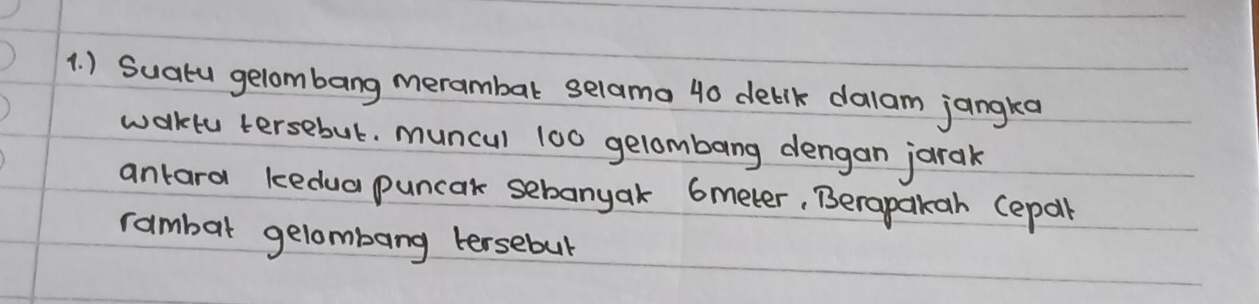 1.) Suatu gelombang merambat selama 40 detik dalam jangka
waktu tersebut. Muncul 100 gelombang dengan jarak
antara kedua puncak sebanyak 6 meter. Berapakah cepat
rambat gelombang tersebut